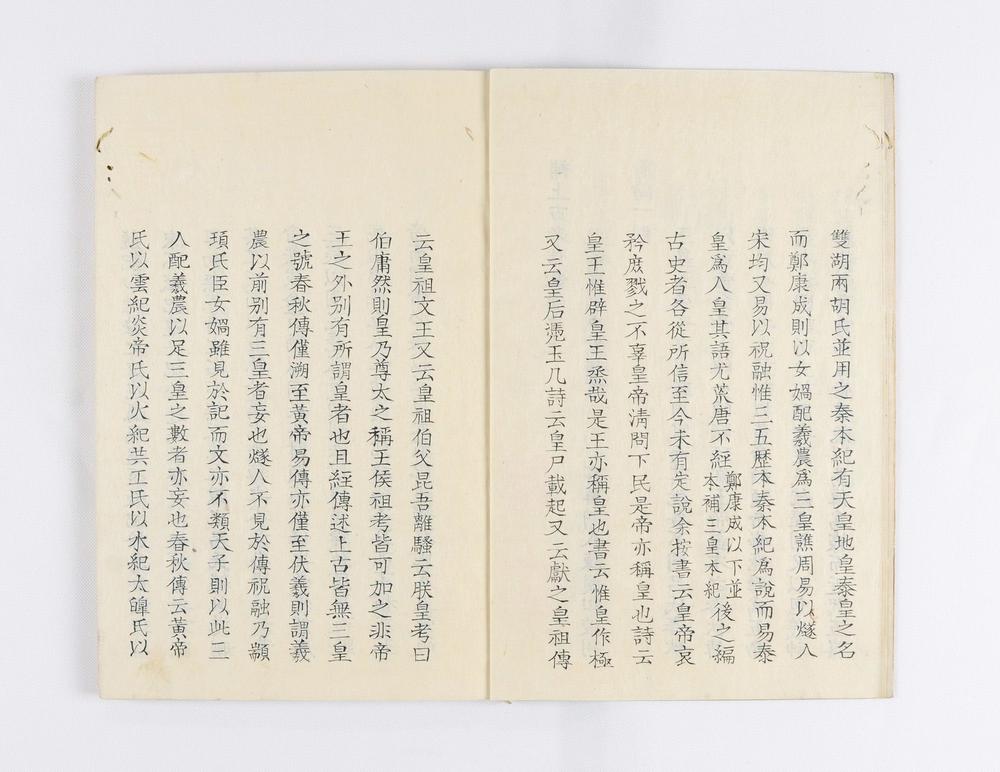 雙湖兩胡氏並用之秦本紀有天皇地皇泰皇之名
而鄭康成則以女媧配羲農爲三皇譙周易以燧人
宋均又易以祝融惟三五歷本秦本紀爲說而易泰
皇爲人皇其語尤荒唐不經鄭康成以下並本補三皇本紀後之編
古史者各從所信至今未有定說余按書云皇帝哀
矜庶戮之不辜皇帝淸問下民是帝亦稱皇也詩云
皇王惟辟皇王烝哉是王亦稱皇也書云惟皇作極
又云皇后憑玉几詩云皇尸載起又云獻之皇祖傳
云皇祖文王又云皇祖伯父昆吾離騷云朕皇考曰
伯庸然則皇乃尊太之稱王侯祖考皆可加之非帝
王之外别有所謂皇者也且經傳述上古皆無三皇
之號春秋傳僅溯至黃帝易傳亦僅至伏羲則謂羲
農以前别有三皇者妄也燧人不見於傳祝融乃顓
頊氏臣女媧雖見於記而文亦不類天子則以此三
人配羲農以足三皇之數者亦妄也春秋傳云黃帝
氏以雲紀炎帝氏以火紀共工氏以水紀太皥氏以